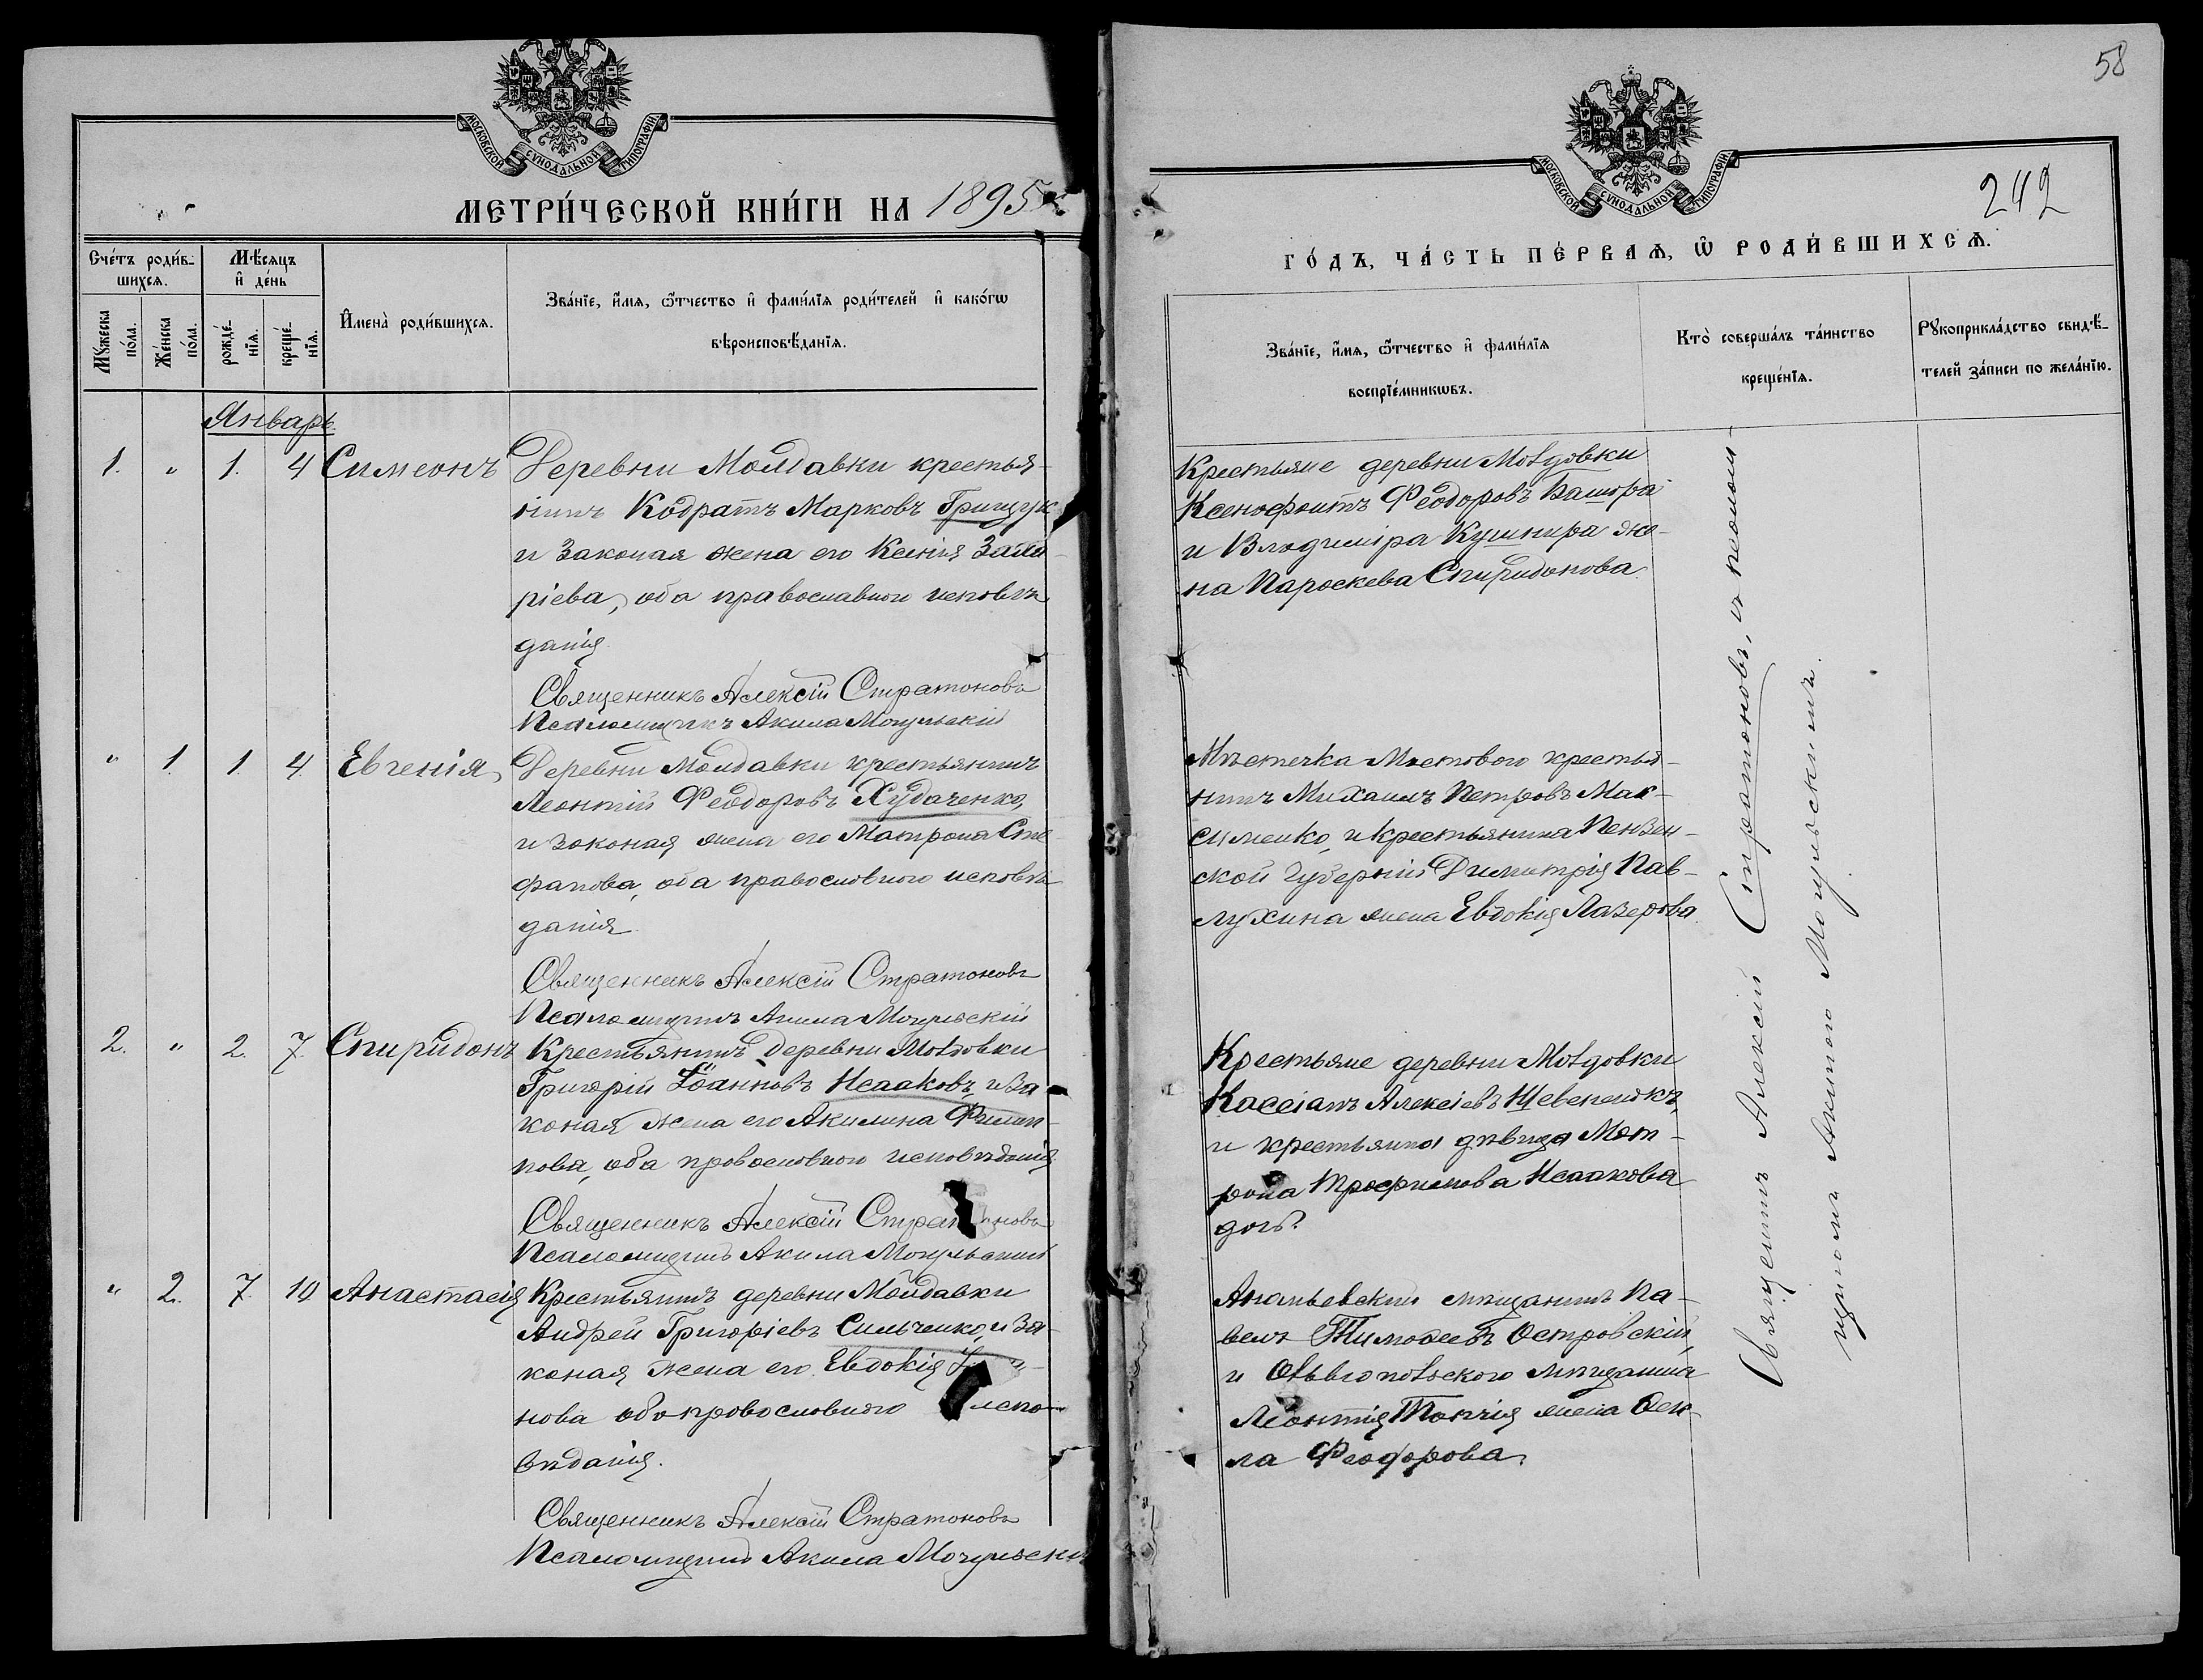 МОСКОВСКОЙ СѴНОДАЛЬНОЙ ТИПОГРАФІИ
МЕТРИ́ЧЕСКОЙ КНИ́ГИ НА 1895
Сче́тъ роди́в-
шихсѧ.
Мѣ́сяцъ
и҆ де́нь
Мꙋ́жеска
по́ла.
Же́нска
по́ла.
рожде́-
нїѧ.
креще́-
нїѧ.
И҆мена̀ роди́вшихсѧ.
Зва́нїе, и҆́мѧ, ѻ҆́тчество и҆ фами́лїѧ роди́телей и҆ како́гѡ
вѣроисповѣ́данїѧ.
Январь.
1. " 1. 4 Симеонъ Деревни Молдавки крестья-
нинъ Кодратъ Марковъ Грищук
и законая жена его Ксенія Заха-
ріева, оба православного исповѣ
данія.
Священникъ Алексій Стратоновъ
Псаломщикъ Акила Могульскій
" 1. 1. 4 Евгенія Деревни Молдавки крестьянинъ
Леонтій Феодоровъ Худаченко,
и законая жена его Матрона Сте
фанова, оба православного исповѣ
данія.
Священникъ Алексій Стратоновъ
Псаломщикъ Акила Могульскій
2. " 2. 7. Спиридонъ Крестьянинъ деревни Молдовки
Григорій Іоанновъ Исааковъ, и за
коная жена его Акилина Филип-
пова, оба православного исповѣданія
Священникъ Алексій Стратоновъ
Псаломщикъ Акила Могульскій
" 2. 7. 10 Анастасія Крестьянинъ деревни Молдавки
Андрей Григоріевъ Сильченко, и за
коная жена его Евдокія
нова оба православного испо-
вѣданія.
Священникъ Алексій Стратоновъ
Псаломщикъ Акила Могульскі
58
МОСКОВСКОЙ СѴНОДАЛЬНОЙ ТИПОГРАФІИ
242
ГО́ДЪ, ЧА́СТЬ ПЕ́РВАѦ, Ѿ РОДИ́ВШИХСѦ.
Зва́нїе, и҆́мѧ, ѻ҆́тчество и҆ фами́лїѧ
воспрїе́мникѡвъ.
Кто̀ соверша́лъ та́инство
креще́нїѧ.
Рꙋкоприкла́дство свидѣ́-
телей за́писи по жела́нїю.
Крестьяне деревни Молдовки
Ксенофонтъ Феодоровъ Башора
и Владиміра Кушнира же-
на Параскева Спиридонова.
Мѣстечка Мостового крестья-
нинъ Михаилъ Петровъ Мак-
сименко, и крестьянина Пензен-
ской губерніи Димитрія Пав-
лухина жена Евдокія Лазерова
Крестьяне деревни Молдовки
Кассіанъ Алексіевъ
и крестьянка дѣвица Мат-
рона Трофимова Исаакова
дочь.
Ананьевскій мѣщанинъ Па-
велъ Тимофеевъ Островскій,
и Ольвіопольского мѣщанина
Леонтія Топчія жена Фек-
ла Феодорова.
Священникъ Алексій Стратоновъ, съ псалом-
щикомъ Акилою Могульскимъ.